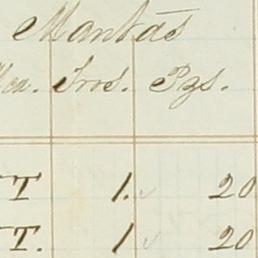 Mantas
Mca. Tros. Pzs.
T 1. 20
T. 1 20